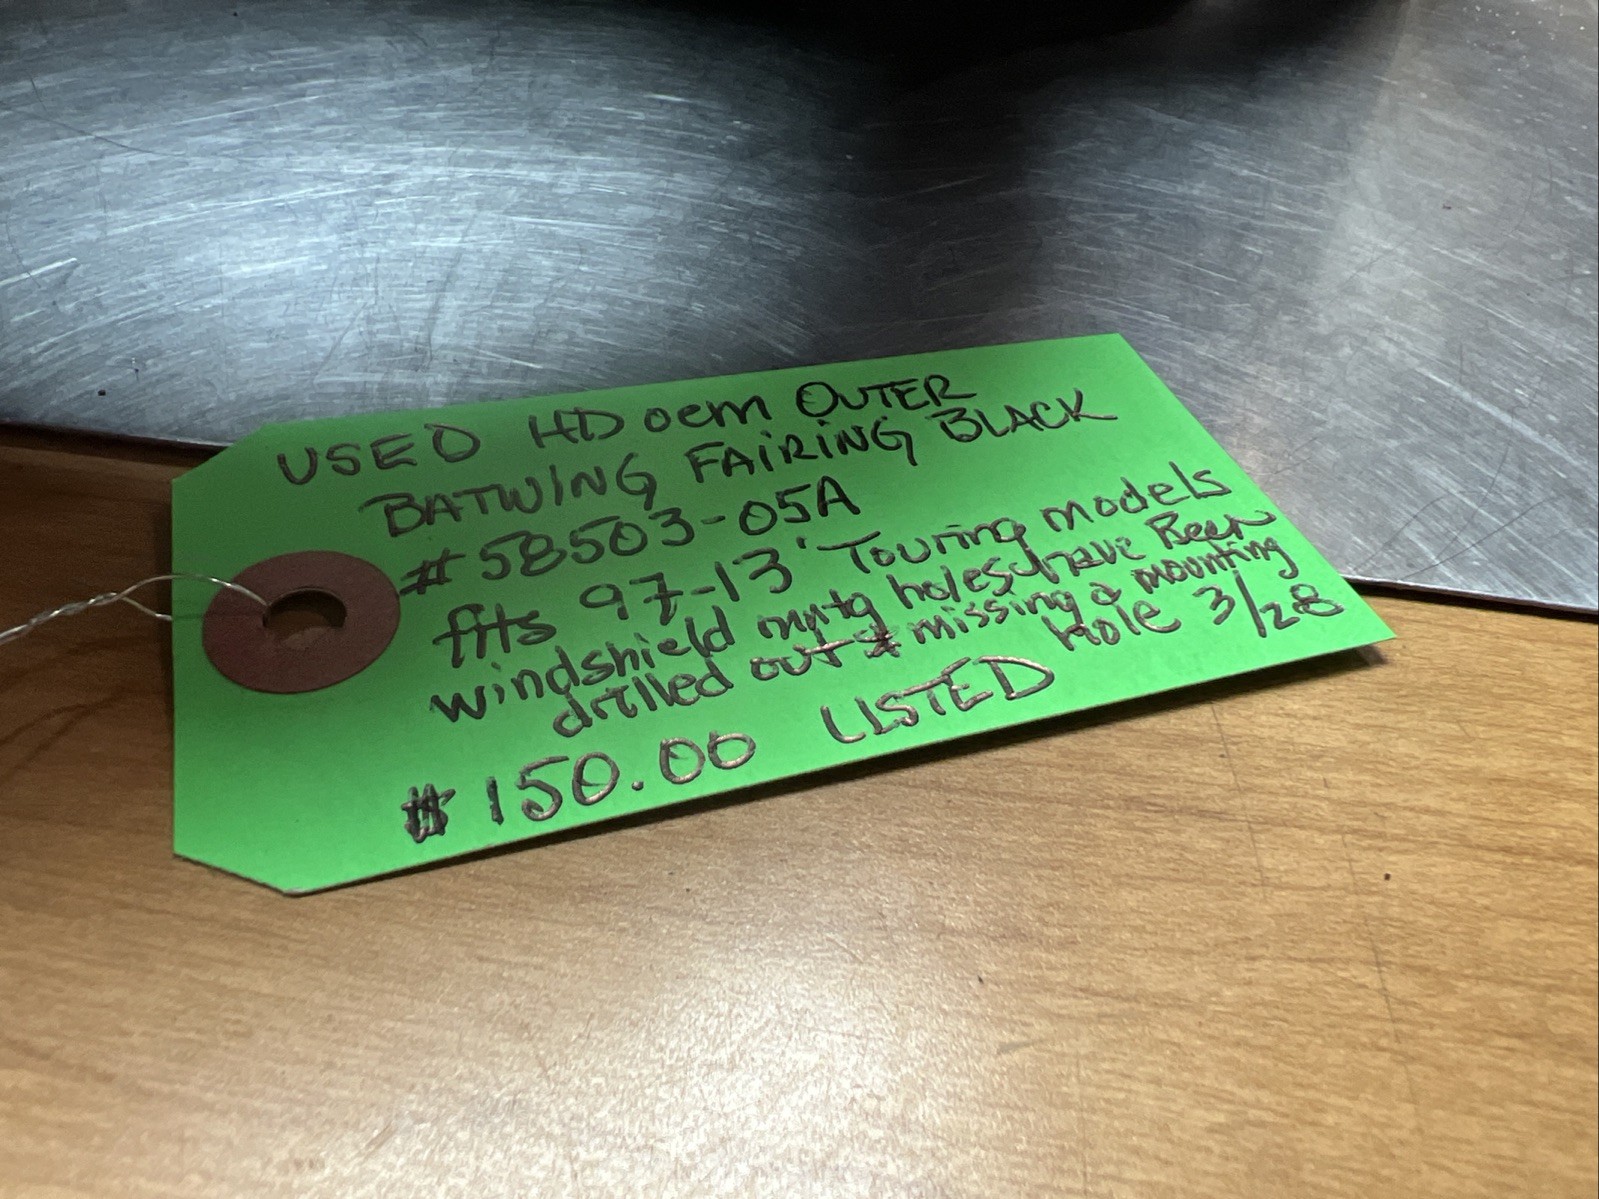 USED HD oem OUTER
BATWING FAIRING BLACK
#58503-05A
fits 97-13' Touring models
windshield mntg holes have Been
drilled out & missing a mounting
hole 3/28
$150.00 LISTED